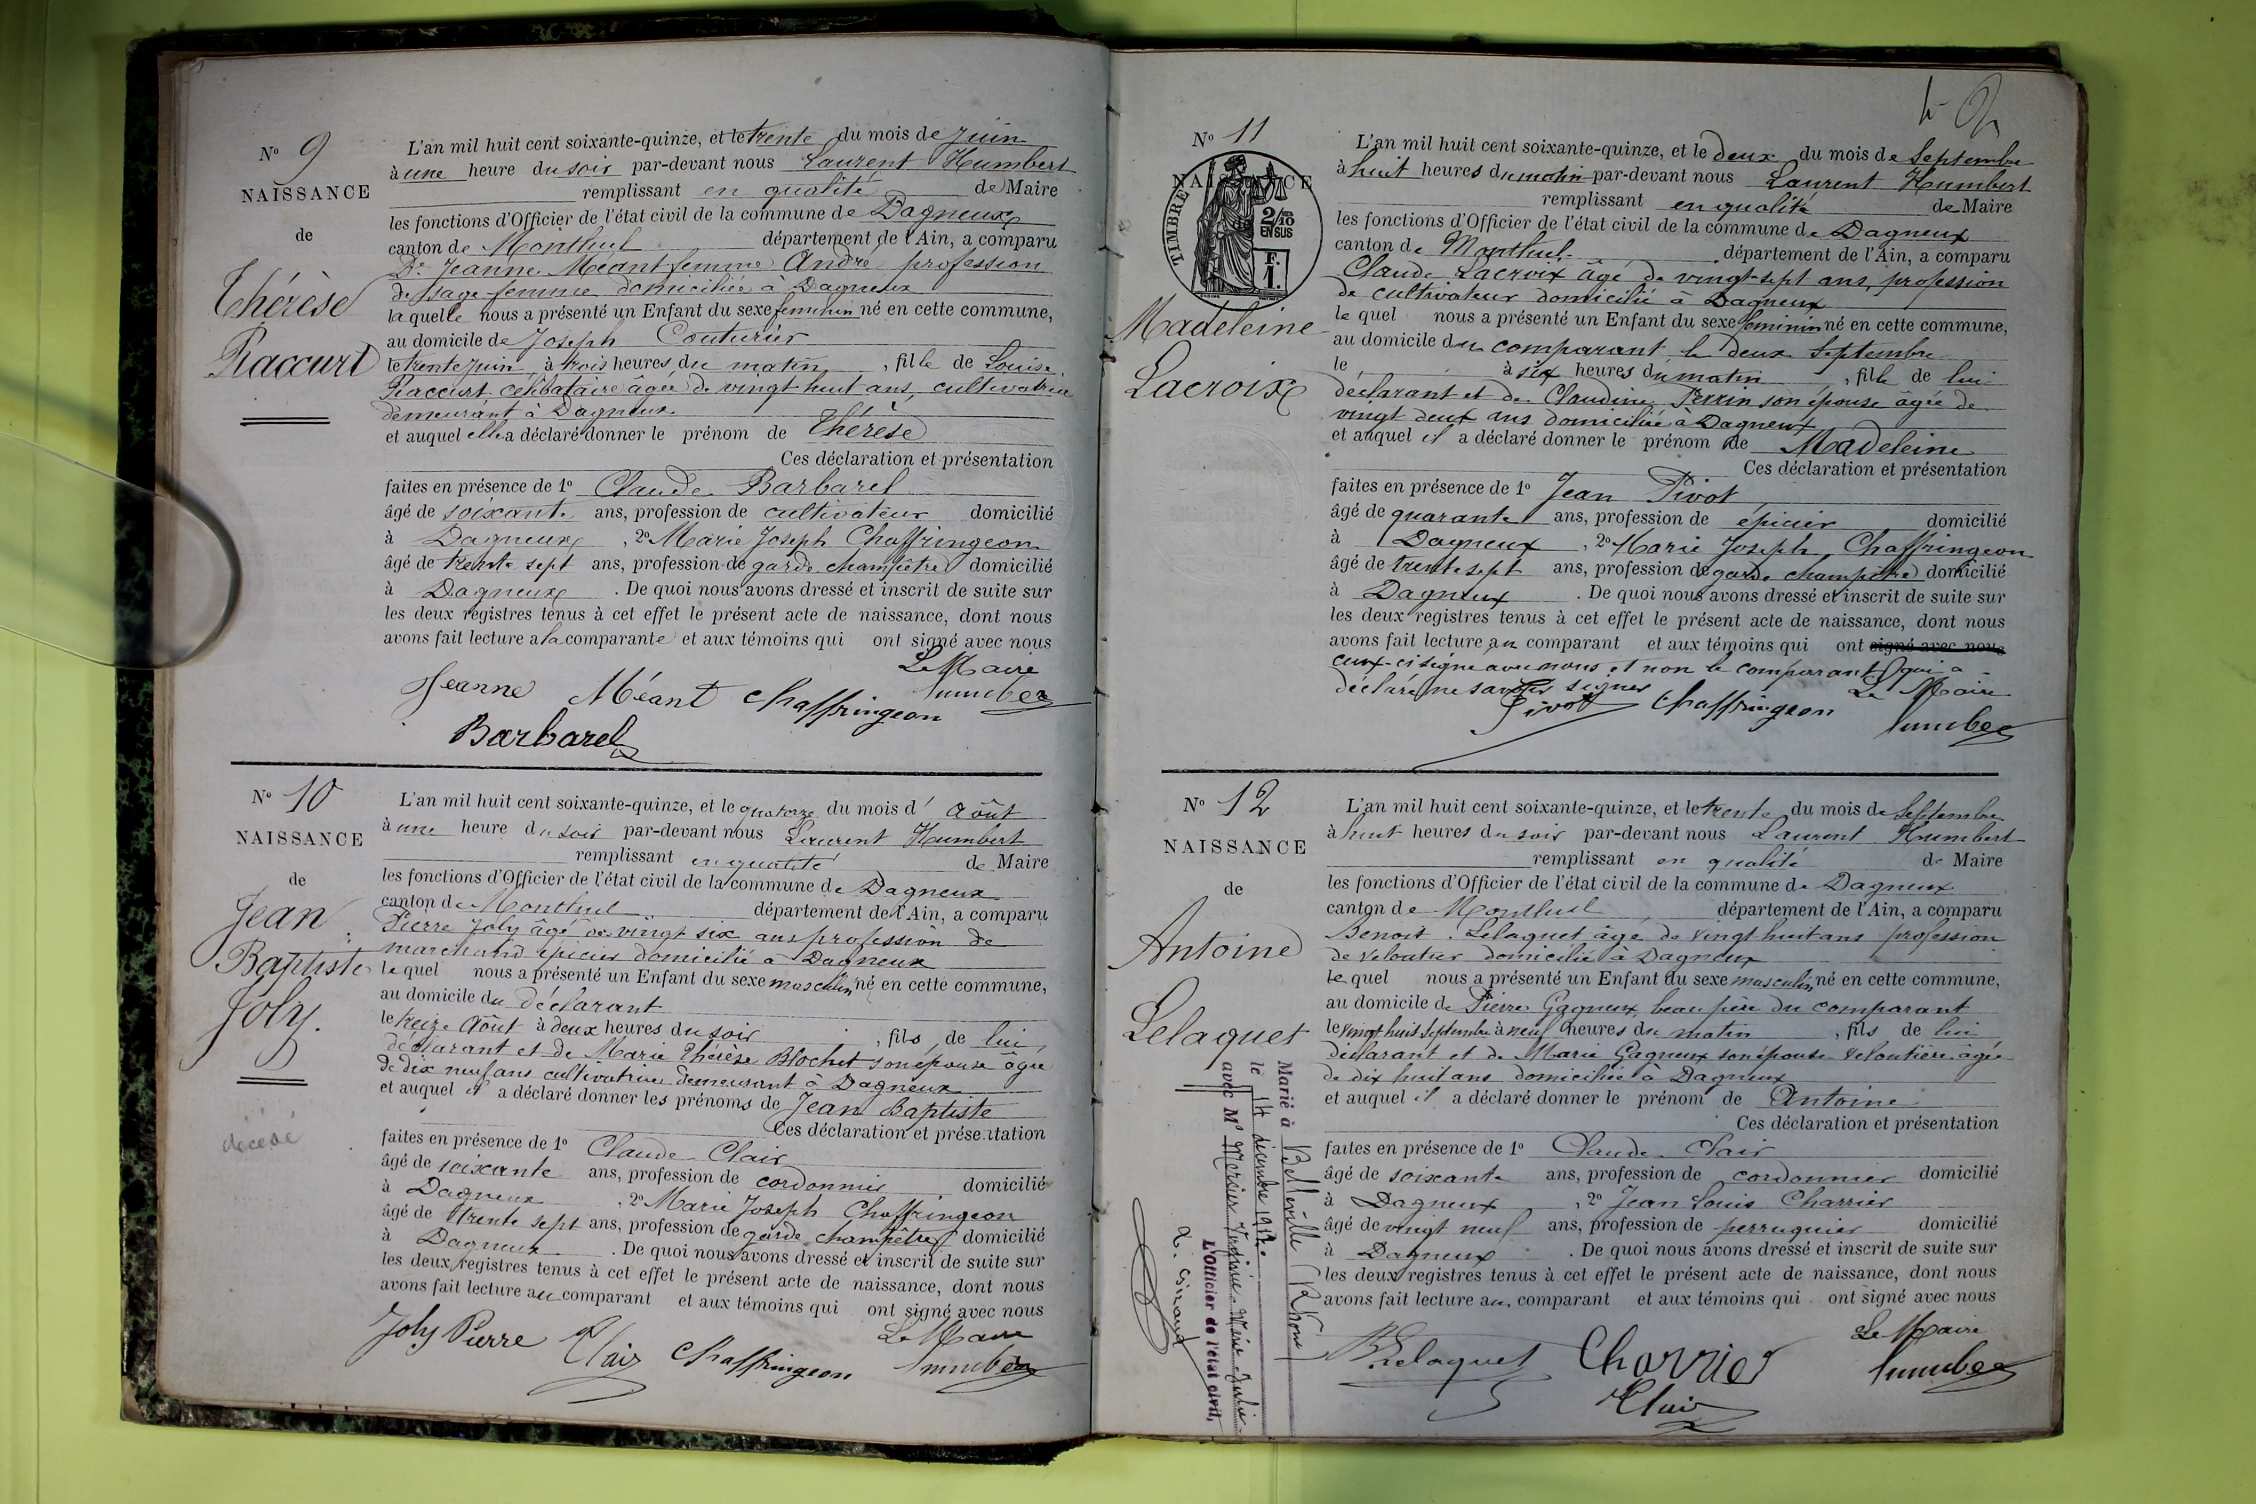 N° 9
NAISSANCE
de
Thérèse
Raccurt
L'an mil huit cent soixante-quinze, et le trente du mois de juin
à une heure du soir par-devant nous Laurent Humbert
remplissant en qualité de Maire
les fonctions d'Officier de l'état civil de la commune de Dagneux
canton de Montluel département de l'Ain, a comparu
De Jeanne Méant femme André profession
de sage-femme domiciliée à Dagneux
la quelle nous a présenté un Enfant du sexe feminin né en cette commune,
au domicile de Joseph Couturier
le trente juin à trois heures du matin, fille de Louise
Raccurt célibataire agée de vingt huit ans, cultivatrice
demeurant à Dagneux
et auquel elle a déclaré donner le prénom de Thérèse
Ces déclaration et présentation
faites en présence de 1° Claude Barbarel
âgé de soixante ans, profession de cultivateur domicilié
à Dagneux, 2° Marie Joseph Chaffringeon
âgé de trente sept ans, profession de garde champêtre domicilié
à Dagneux. De quoi nous avons dressé et inscrit de suite sur
les deux registres tenus à cet effet le présent acte de naissance, dont nous
avons fait lecture a la comparante et aux témoins qui ont signé avec nous
Le Maire
Jeanne Méant Chaffringeon Humbert
Barbarel
N° 10
NAISSANCE
de
Jean
Baptiste
Joly.
décédé
L'an mil huit cent soixante-quinze, et le quatorze du mois d' Août
à une heure du soir par-devant nous Laurent Humbert
remplissant en qualité de Maire
les fonctions d'Officier de l'état civil de la commune de Dagneux
canton de Montluel département de l'Ain, a comparu
Pierre Joly âgé de vingt six ans profession de
marchand épicier domicilié à Dagneux
le quel nous a présenté un Enfant du sexe masculin né en cette commune,
au domicile du déclarant
le treize Août à deux heures du soir, fils de lui
déclarant et de Marie Thérèse Blochet son épouse âgée
de dix neuf ans cultivatrice demeurant à Dagneux
et auquel il a déclaré donner les prénoms de Jean Baptiste
Ces déclaration et présentation
faites en présence de 1° Claude Clair
âgé de soixante ans, profession de cordonnier domicilié
à Dagneux, 2° Marie Joseph Chaffringeon
âgé de trente sept ans, profession de garde champêtre domicilié
à Dagneux. De quoi nous avons dressé et inscrit de suite sur
les deux registres tenus à cet effet le présent acte de naissance, dont nous
avons fait lecture au comparant et aux témoins qui ont signé avec nous
Le Maire
Joly Pierre Clair Chaffringeon Humbert
N° 11
NAISSANCE
TIMBRE
2/10
EN SUS
F.
1.
Madeleine
Lacroix
L'an mil huit cent soixante-quinze, et le deux du mois de Septembre
à huit heures du matin par-devant nous Laurent Humbert
remplissant en qualité de Maire
les fonctions d'Officier de l'état civil de la commune de Dagneux
canton de Montluel département de l'Ain, a comparu
Claude Lacroix âgé de vingt-sept ans, profession
de cultivateur domicilié à Dagneux
le quel nous a présenté un Enfant du sexe feminin né en cette commune,
au domicile du comparant, le deux Septembre
le à six heures du matin, fille de lui
déclarant et de Claudine Perrin son épouse agée de
vingt deux ans domiciliée à Dagneux
et auquel il a déclaré donner le prénom de Madeleine
Ces déclaration et présentation
faites en présence de 1° Jean Pivot
âgé de quarante ans, profession de épicier domicilié
à Dagneux, 2° Marie Joseph Chaffringeon
âgé de trente sept ans, profession de garde champêtre domicilié
à Dagneux. De quoi nous avons dressé et inscrit de suite sur
les deux registres tenus à cet effet le présent acte de naissance, dont nous
avons fait lecture au comparant et aux témoins qui ont signé avec nous
ceux-ci signé avec nous et non le comparant qui a
déclaré ne savoir signer Le Maire
Pivot Chaffringeon Humbert
N° 12
NAISSANCE
de
Antoine
Lelaquet
Marié à Belleville (Rhône)
le 14 décembre 1912
avec Mr Mercier Virginie Marie Julie
L'Officier de l'état civil,
L'an mil huit cent soixante-quinze, et le trente du mois de Septembre
à huit heures du soir par-devant nous Laurent Humbert
remplissant en qualité de Maire
les fonctions d'Officier de l'état civil de la commune de Dagneux
canton de Montluel département de l'Ain, a comparu
Benoit Lelaquet âgé de vingt huit ans profession
de veloutier domicilié à Dagneux
le quel nous a présenté un Enfant du sexe masculin né en cette commune,
au domicile de Pierre Gagneux beau père du comparant
le vingt huit Septembre à neuf heures du matin, fils de lui
déclarant et de Marie Gagneux son épouse veloutière agée
de dix huit ans domiciliée à Dagneux
et auquel il a déclaré donner le prénom de Antoine
Ces déclaration et présentation
faites en présence de 1° Claude Clair
âgé de soixante ans, profession de cordonnier domicilié
à Dagneux, 2° Jean Louis Charrier
âgé de vingt neuf ans, profession de perruquier domicilié
à Dagneux. De quoi nous avons dressé et inscrit de suite sur
les deux registres tenus à cet effet le présent acte de naissance, dont nous
avons fait lecture au comparant et aux témoins qui ont signé avec nous
Le Maire
B. Lelaquet Charrier Humbert
Clair